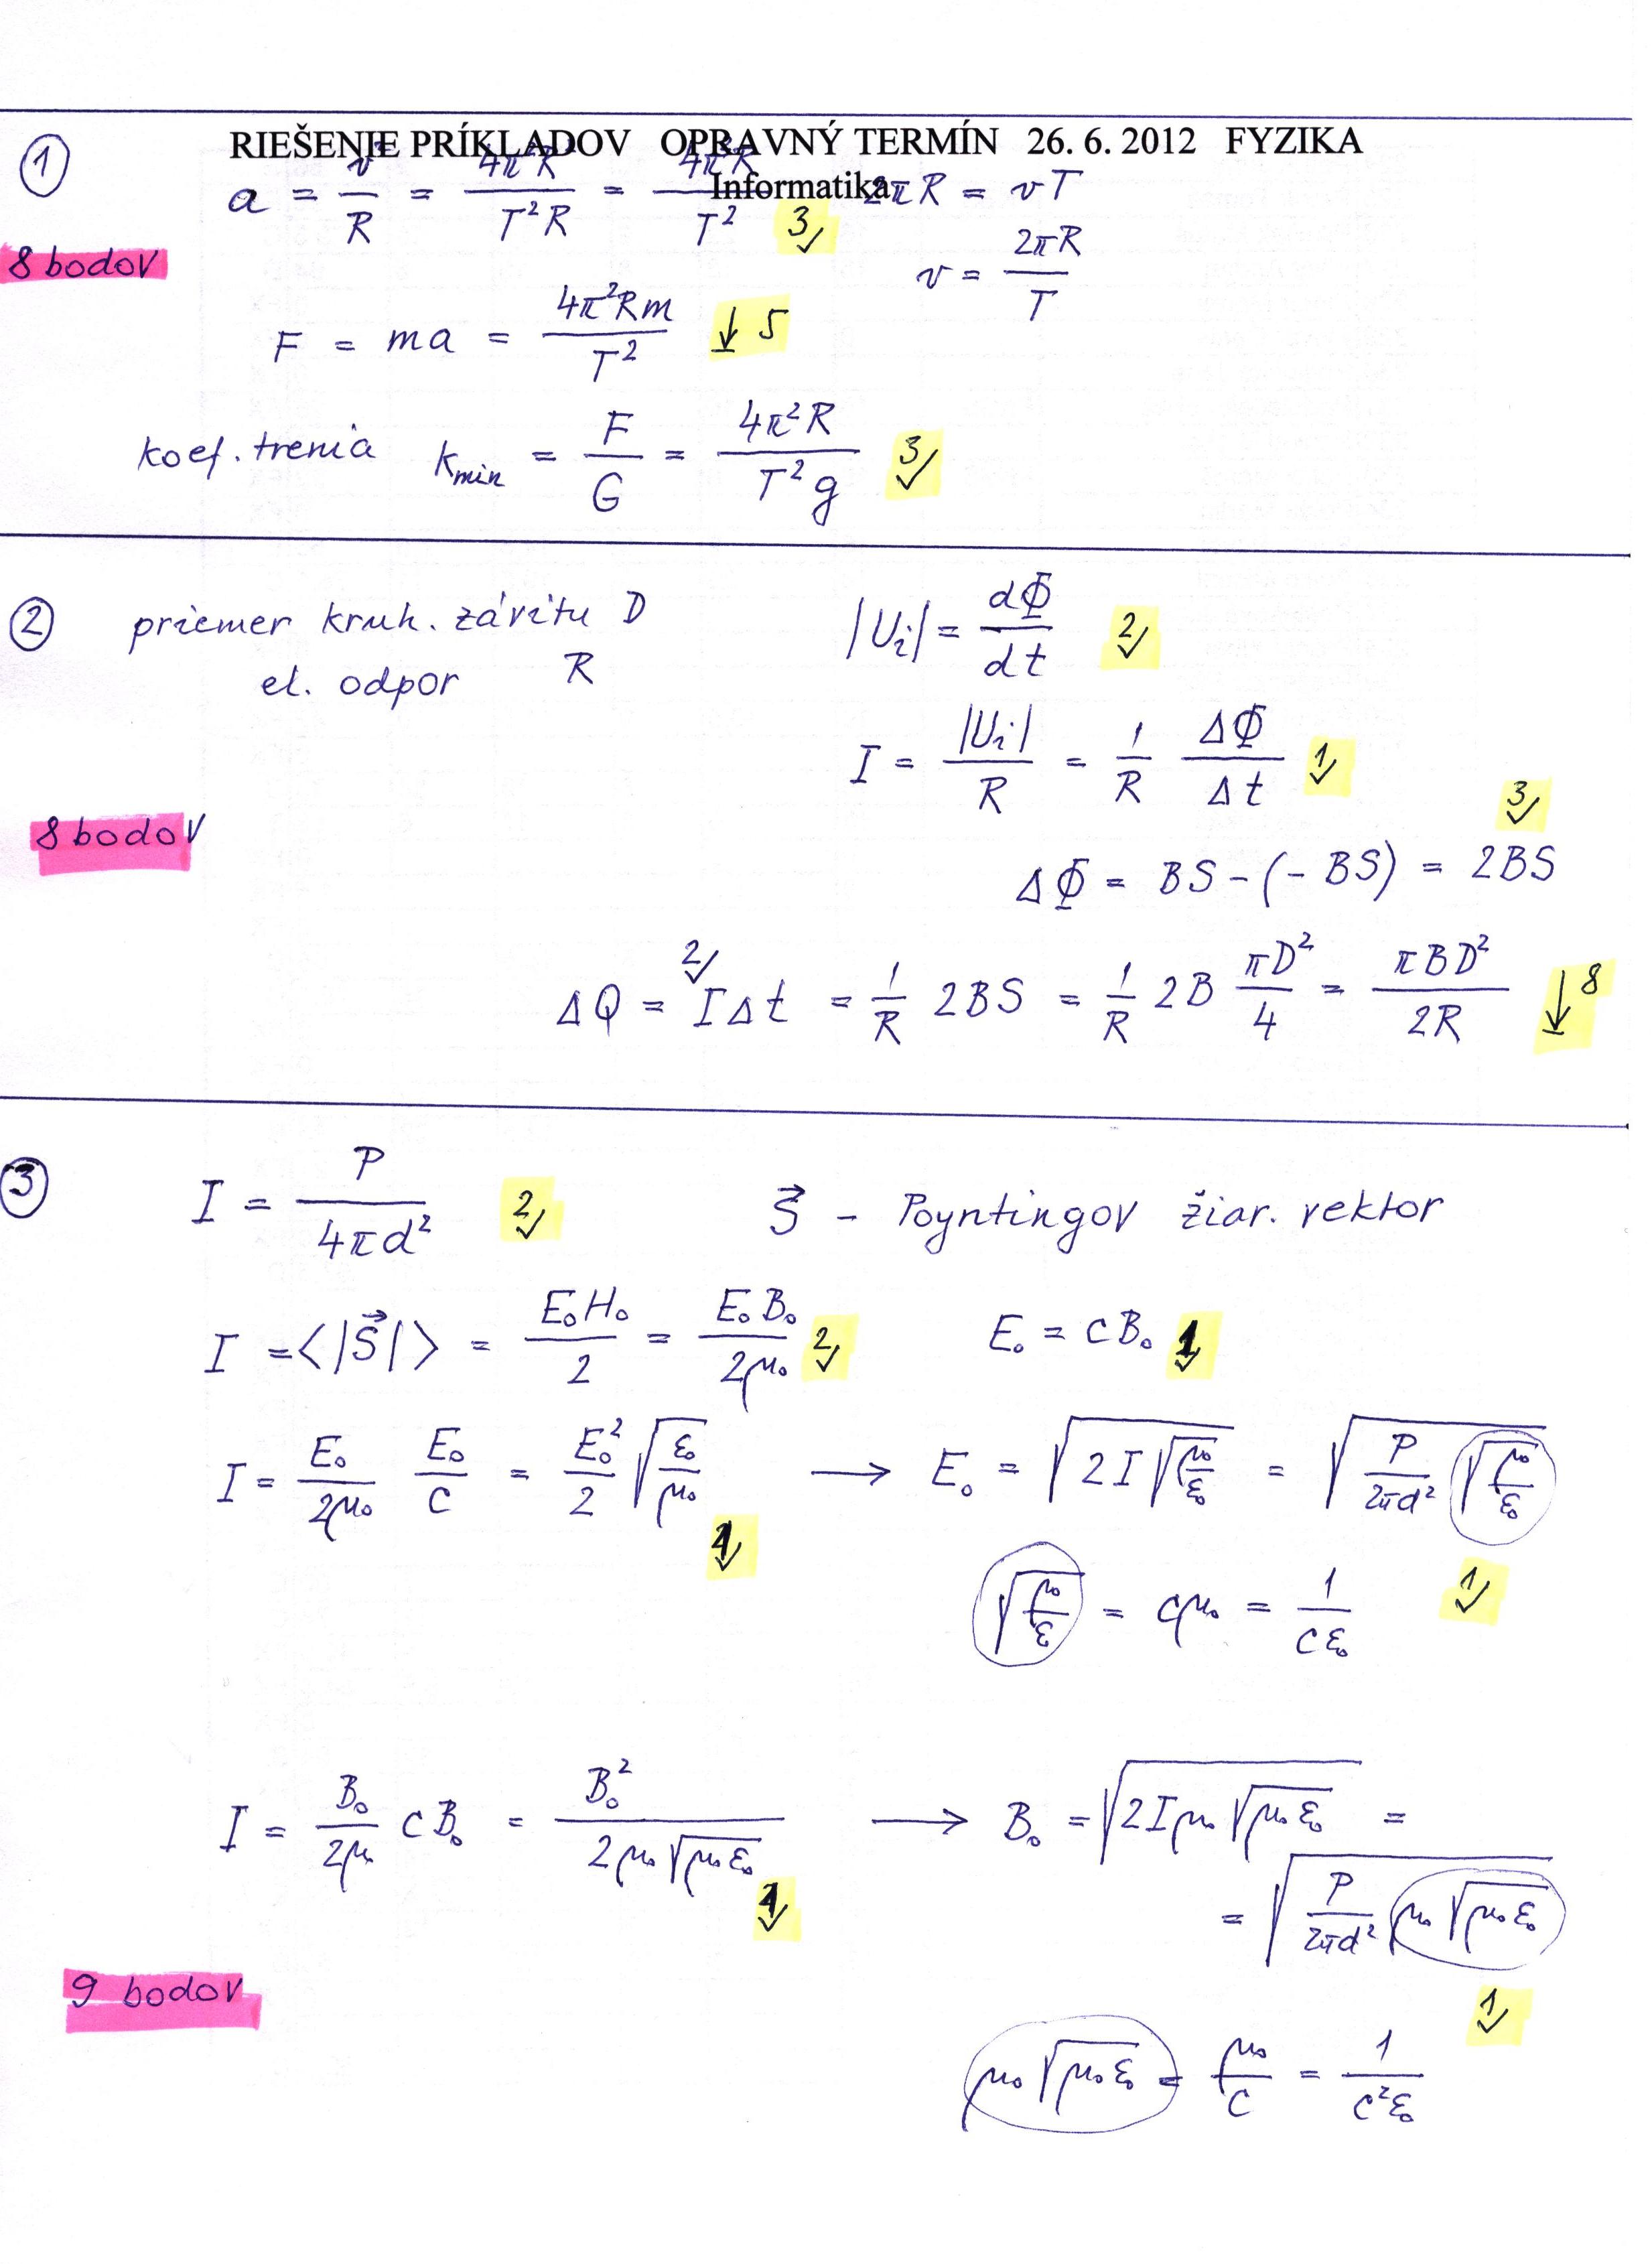 RIEŠENIE PRÍKLADOV OPRAVNÝ TERMÍN 26. 6. 2012 FYZIKA
Informatika
1
a = v²/R = 4π²R²/T²R = 4π²R/T² 3 2πR = vT
8 bodov
v = 2πR/T
F = ma = 4π²Rm/T² ↓ 5
koef. trenia k_min = F/G = 4π²R/T²g 3
2 priemer kruh. závitu D |U_i| = dΦ/dt 2
el. odpor R
I = |U_i|/R = 1/R ΔΦ/Δt 1
8 bodov
3
ΔΦ = BS - (- BS) = 2BS
2
ΔQ = IΔt = 1/R 2BS = 1/R 2B πD²/4 = πBD²/2R ↓ 8
3 I = P/4πd² 2 S⃗ - Poyntingov žiar. vektor
I = <|S⃗|> = E₀H₀/2 = E₀B₀/2μ₀ 2 E₀ = cB₀ 1
I = E₀/2μ₀ E₀/c = E₀²/2 √(ε₀/μ₀) → E₀ = √(2I√(μ₀/ε₀)) = √(P/2πd² √(μ₀/ε₀))
1
√(μ₀/ε) = cμ₀ = 1/cε₀ 1
I = B₀/2μ cB₀ = B₀²/2μ₀√(μ₀ε₀) → B₀ = √(2Iμ₀√(μ₀ε₀)) =
1
= √(P/2πd² μ₀√(μ₀ε₀))
9 bodov
1
μ₀√(μ₀ε₀) = μ₀/c = 1/c²ε₀